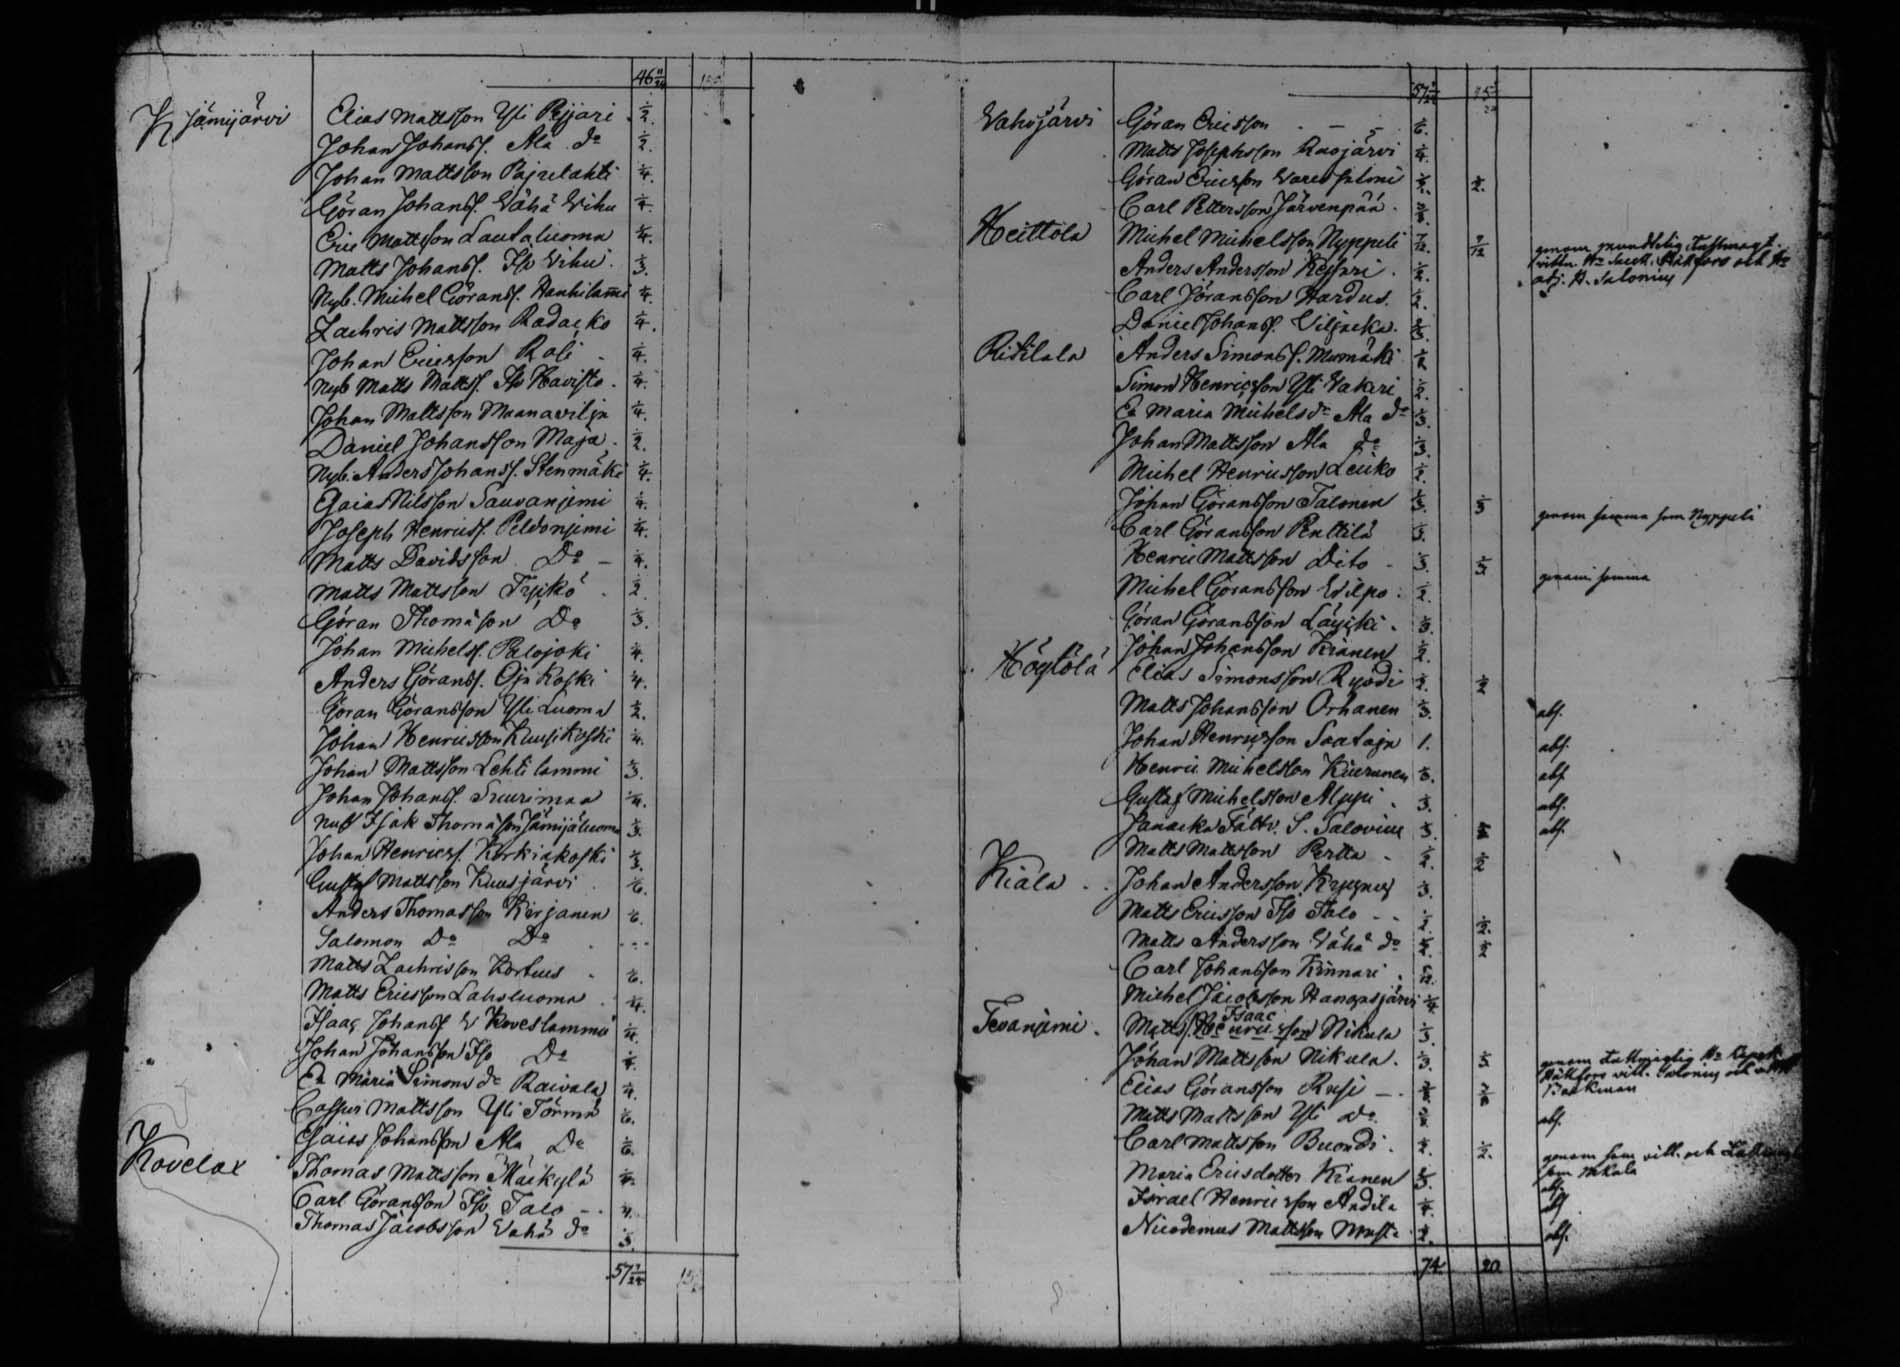 46 11/24
Jämijärvi Elias Mattsson Yli Pejjari 1/2.
Johan Johanss. Ala do 1/2.
Johan Mattsson Pajulahti 1/4.
Göran Johanss. Vähä Vihu 1/4.
Eric Mattsson Lautaluoma 1/4.
Matts Johanss. Iso Vihu 1/3.
Nyb. Michel Göranss. Hauhilammi 1/4.
Zachris Mattsson Radacko 1/4.
Johan Ericsson Rali 1/4.
Nyb Matts Mattss. Iso Havisto 1/4.
Johan Mattsson Maanavilja 1/4.
Daniel Johansson Maja 1/2.
Nyb. Anders Johanss. Stenmäki 1/4.
Esaias Nilsson Sauvanjemi 1/4.
Joseph Henricss. Peldonjemi 1/4.
Matts Davidsson Do 1/4.
Matts Mattsson Tryko 1/2.
Göran Thomason Do 1/3.
Johan Michelss. Palojoki 1/4.
Anders Göranss. Oja Koski 1/4.
Göran Göransson Yli Luoma 1/2.
Johan Henricsson Kuusikoski 1/4.
Johan Mattsson Lehtilammi 1/3.
Johan Johanss. Suurimaa 1/4.
Isak Thomason Jämijäluoma 1/3.
Johan Henricss. Korkiakoski 1/3.
Gustaf Mattsson Kuusjärvi 1/6.
Anders Thomasson Kirjanen 1/6.
Salomon Do Do
Matts Zachrisson Kortus 1/6.
Matts Ericsson Laholuoma 1/4.
Isaac Johanss V Koveslammi 1/4.
Johan Johansson Iso Do 1/4.
Ea Maria Simons dr Raivala 1/4.
Casper Mattsson Yli Törmä 1/6.
Esaias Johansson Ala Do 1/6.
Kovelax Thomas Mattsson Mäkylä
Carl Göransson Iso Talo 1/4.
Thomas Jacobsson Vähä do 1/3.
57 7/24 15
57 7/24 15
Vahojärvi Göran Ericsson 1/6.
Matts Josephsson Ruojärvi 1/4.
Göran Ericsson Vares salmi 1/2. 1/2.
Carl Pettersson Järvenpää
Heittola Michel Michelsson Nyppeli 7/12. 7/12 genom mundtelig
Anders Andersson Keysari 1/2.
adj. H. Salonius
Carl Jöransson Hardus 1/2.
Daniel Johanss. Viljacka
Ritilala Anders Simonss. Mumäki 1/2
Simon Henricsson Yli Vakeri 1/2.
Ea Maria Michelsdr Ala do 1/3.
Johan Mattsson Ala do 1/3.
Michel Henricsson Leiko 1/2.
Johan Göransson Talonen 1/3. 1/3 genom samma som Nyppeli
Carl Göransson Penttilä 1/3.
Henric Mattsson Dito 1/3. 1/3 genom samma
Michel Göransson Vilpo 1/2.
Göran Göransson Läyski 1/3.
Johan Johansson Kianen 1/2.
Höytölä Elias Simonsson Ryödi 1/2. 1/2
Matts Johansson Orhanen 1/3. abs.
Johan Henricsson Saataja 1. abs.
Henric Michelsson Kierunen 1/6. abs
Gustaf Michelsson Alppi 1/3. abs.
Janacka Fältv. S. Salovius abs.
Matts Mattsson Pertta 1/2. 1/2
Kiala Johan Andersson 1/3.
Matts Ericsson Iso Talo 1/2. 1/2.
Matts Andersson Vähä do 1/2. 1/2
Carl Johansson Kinnari
Michel Jacobsson Hanapsjärvi 1/4.
Isaac
Tevanjemi Matts Henricsson Nikula 1/3.
Johan Mattsson Nikula 1/3. 1/3
Elias Göransson Rusi
Baakman
Matts Mattsson Yli Do abs.
Carl Mattsson Buondi 1/2. 1/2. genom som vitt. och
som Nikula
Maria Ericsdotter Kianen abs.
Israel Henricsson Andila 1/4. abs
Nicodemus Mattsson 1/2. abs.
74 20